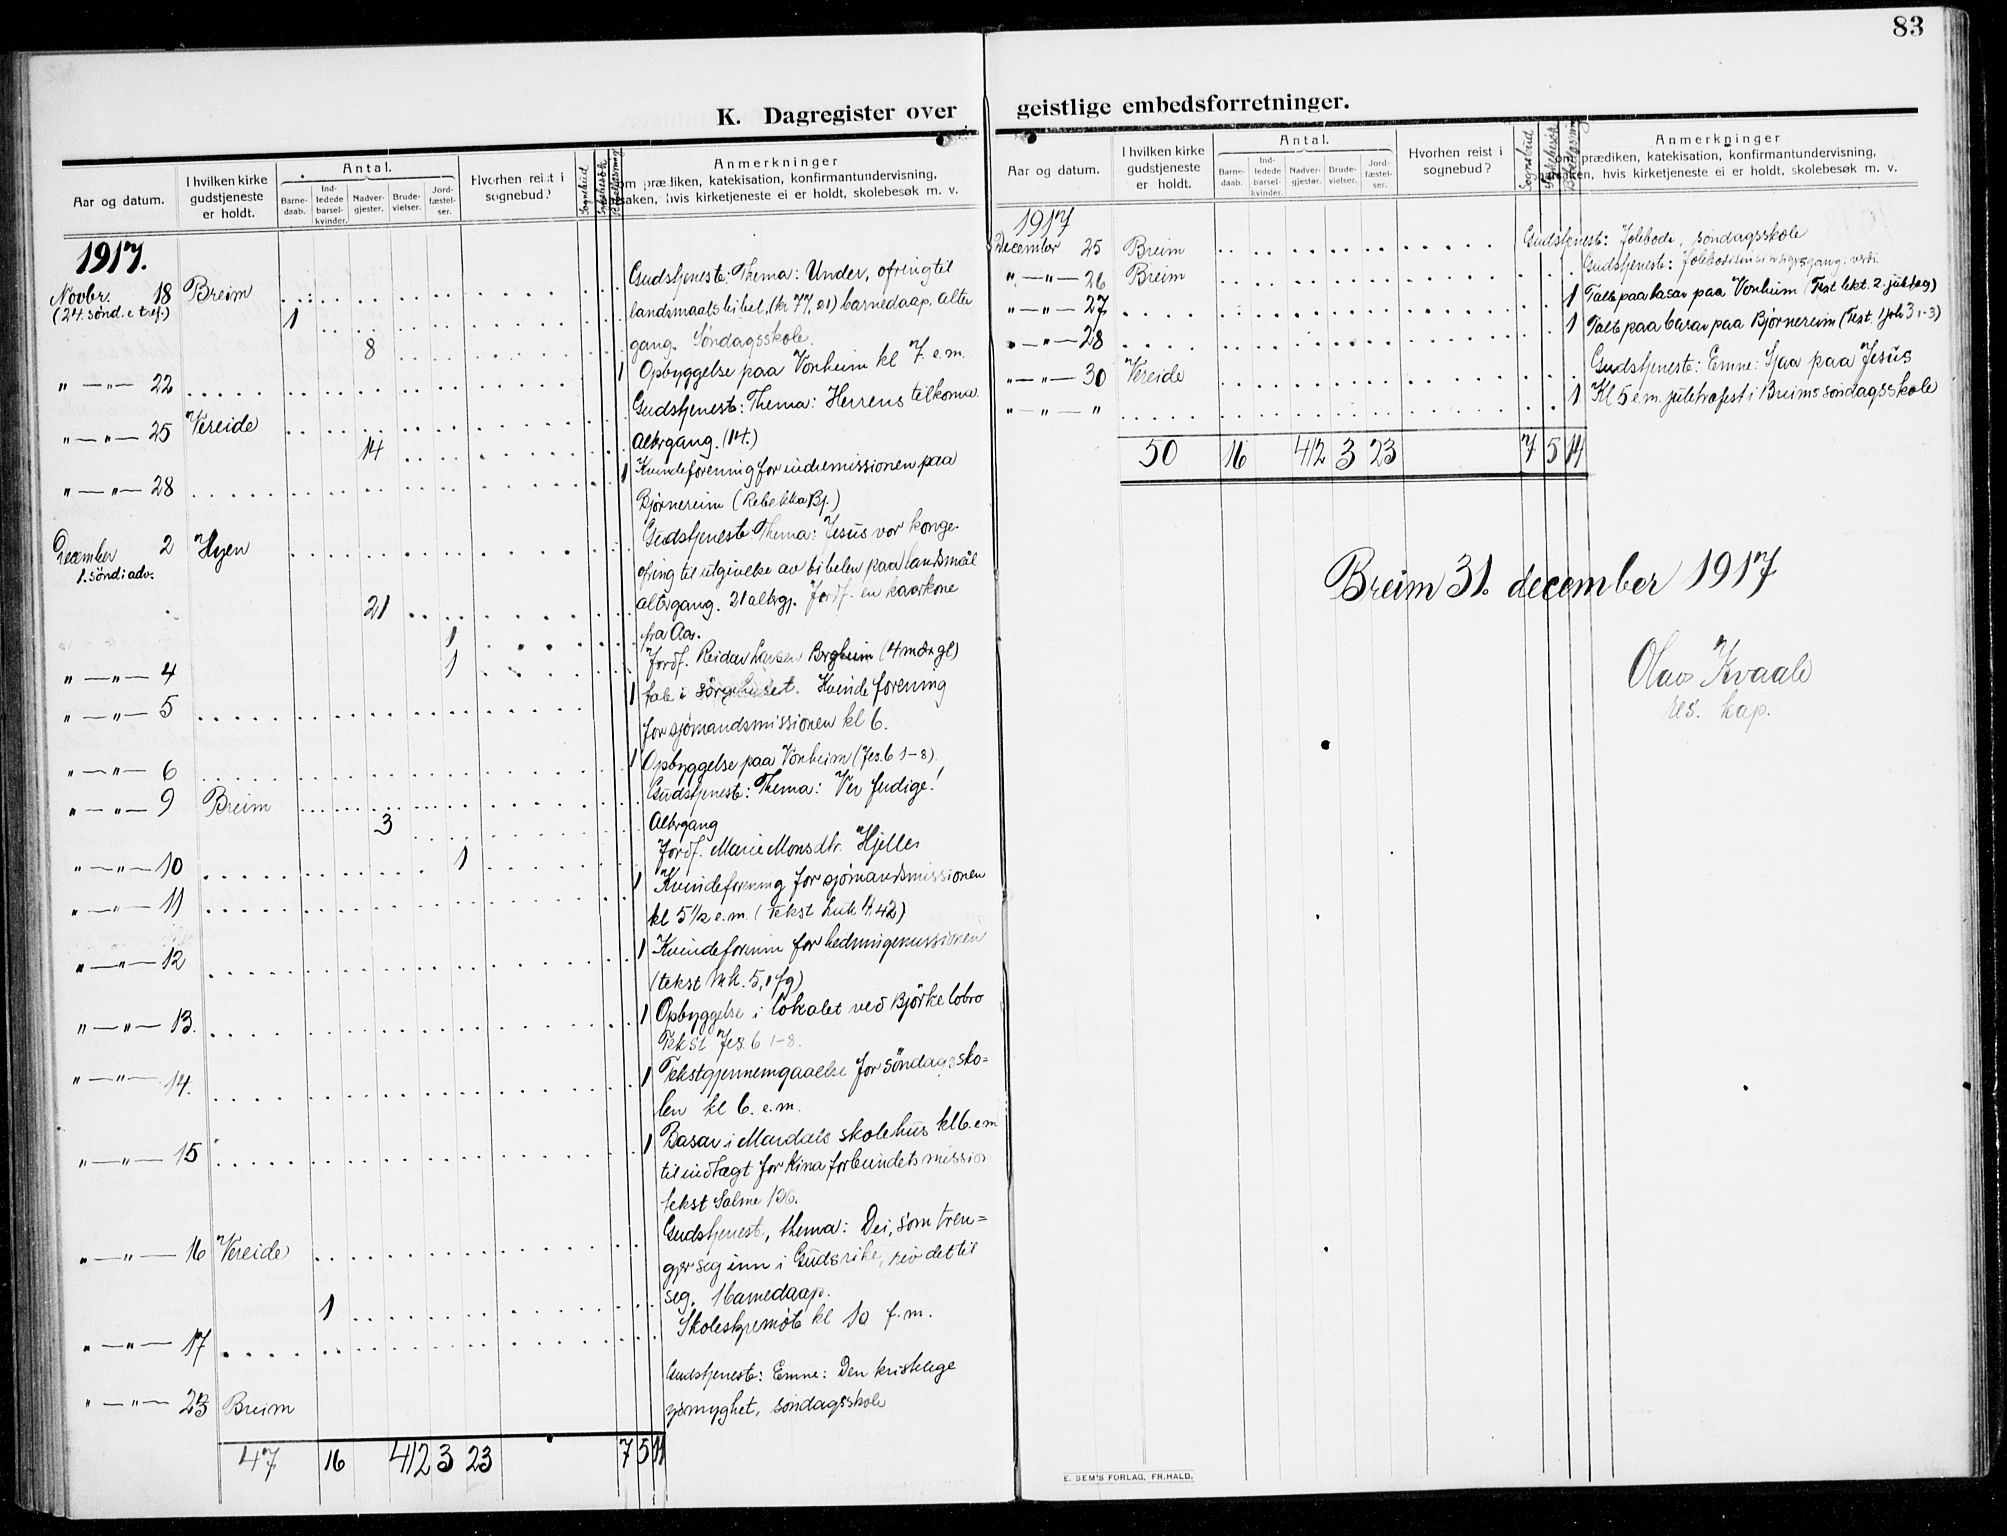 83
K. Dagregister over
geistlige embedsforretninger.
Aar og datum.
I hvilken kirke gudstjeneste er holdt.
Antal.
Barne-daab.
Ind-ledede barsel-kvinder.
Nadver-gjester.
Brude-vielser.
Jord-fæstel-ser.
Hvorhen reist i sognebud?
Sognebud
Sykebesøk
Bibellæsning
Anmerkninger
om prædiken, katekisation, konfirmantundervisning,
saken, hvis kirketjeneste ei er holdt, skolebesøk m. v.
1917.
Novbr. 18 Breim Gudstjeneste: Thema: Under, ofring til
(24. sønd. e tref.) 1 landsmaalsbibel. (kr 77,21) barnedaap. Alter
8 gang. Søndagsskole.
" — " — 22 1 Opbyggelse paa Vonheim kl 7 e.m.
" — " — 25 Vereide Gudstjeneste: Thema: Herrens tilkoma
14 Altergang. (14.)
" — " — 28 1 Kvindeforening for indremissionen paa
Bjørnereim (Rebekka Bj.)
December 2 Hyen Gudstjeneste Thema: Jesus vor konge.
1. sønd i adv. ofring til utgivelse av bibelen paa landsmål
21 altergang. 21 altergj. Jordf. en kaarkone
1 fra Aa.
" — " — 4 1 Jordf. Reidar Larsen Bergheim (4 mdr gl)
" — " — 5 1 tale i sörgehuset. Kvinde forening
for sjømandsmissionen kl 6.
" — " — 6 1 Opbyggelse paa Vonheim (Jes. 6 1-8).
" — " — 9 Breim Gudstjeneste: Thema: Ver ferdige!
3 Altergang
" — " — 10 1 Jordf. Marie Monsdtr. Hjelle
" — " — 11 1 Kvindeforening for sjømandsmissionen
kl 5 1/2 e.m. (tekst Luk 11.42)
" — " — 12 1 Kvindeforenin for hedningemissionen
(tekst Mk. 5,1 fg)
" — " — 13. 1 Opbyggelse i lokalet ved Björkelobro
Tekst Jes. 6 1-8.
" — " — 14. 1 Tekstgjennemgaaelse for søndagssko=
len kl 6. e.m.
" — " — 15 1 Basar i Mardals skolehus kl 6. e m
til indtægt for Kinaforbundets mission
tekst Salme 126.
" — " — 16 Vereide Gudstjeneste, thema: Dei, som tren=
gjer seg inn i Gudsrike, riv det til
1 seg. 1 barnedaap.
" — " — 17 Skolestyremøte kl 10 f.m.
" — " — 23 Breim Gudstjeneste: Emne: Den kristelege
audmyghet, søndagsskole
47 16 412 3 23 7 5 11
Aar og datum.
I hvilken kirke gudstjeneste er holdt.
Antal.
Barne-daab.
Ind-ledede barsel-kvinder.
Nadver-gjester.
Brude-vielser.
Jord-fæstel-ser.
Hvorhen reist i sognebud?
Sognebud
Sykebesøk
Bibellæsning
Anmerkninger
om prædiken, katekisation, konfirmantundervisning,
saken, hvis kirketjeneste ei er holdt, skolebesøk m. v.
1917
December 25 Breim Gudstjeneste: Jolebode, søndagsskole
" — " — 26 Breim Gudstjeneste:
" — " — 27 1 Tale paa basar paa Vonheim (Text lekt. 2. juledag)
" — " — 28 1 Tale paa basar paa Bjørnereim (Test. 1 Joh 3 1-3)
" — " — 30 Vereide Gudstjeneste: Emne: Sjaa paa Jesus
" — " — " 1 Kl 5 e.m. juletrefest i Breims søndagsskole
50 16 412 3 23 7 5 14
Breim 31. december 1917
Olav Kvaale
res. kap.
E. SEM'S FORLAG, FR.HALD.